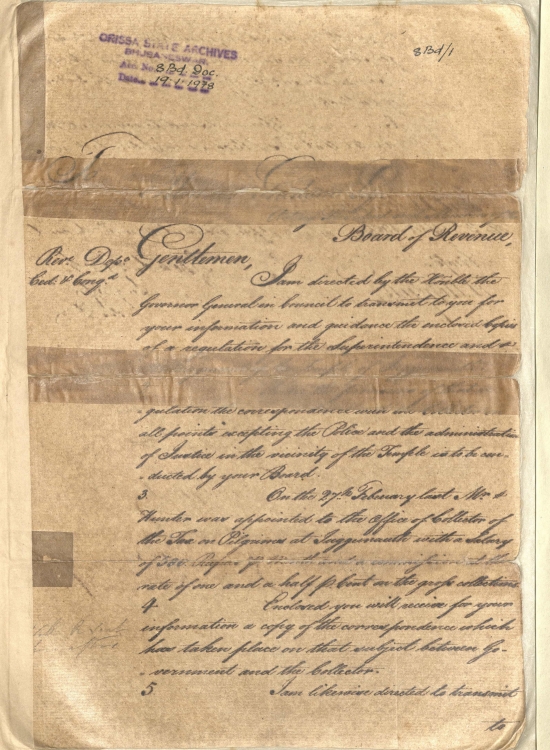 ORISSA STATE ARCHIVES
BHUBANESWAR.
Acc. No. 3 Bd. Doc.
Date. 19-1-1978
3 Bd/1
To
Board of Revenue,
Rev. Dept.
Ced. & Conq.d
Gentlemen,
I am directed by the Honble the
Governor General in Council to transmit to you for
your information and guidance the enclosed Copies
of a regulation for the Superintendence and
-gulation the correspondence
all points excepting the Police and the administration
of Justice in the vicinity of the Temple is to be con-
-ducted by your Board.
3. On the 27th February last Mr.
Hunter was appointed to the Office of Collector of
the Tax on Pilgrims at Juggernauth with a Salary
of and a commission at the
rate of one and a half p Cent on the gross collections
4. Enclosed you will receive for your
information a copy of the correspondence which
has taken place on that subject between Go-
-vernment and the Collector.
5 I am likewise directed to transmit
to